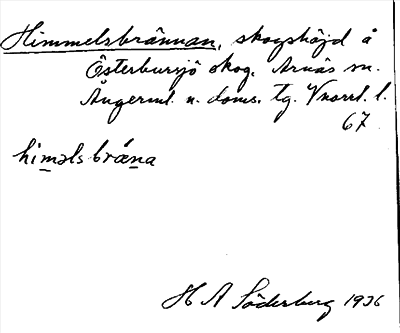 Himmelsbrännan, skogshöjd å
Österbursjö skog. Arnäs sn.
Ångerml. n. doms. tg. Vnorrl. l.
67
himəlsbrǽna
H A Söderberg 1936